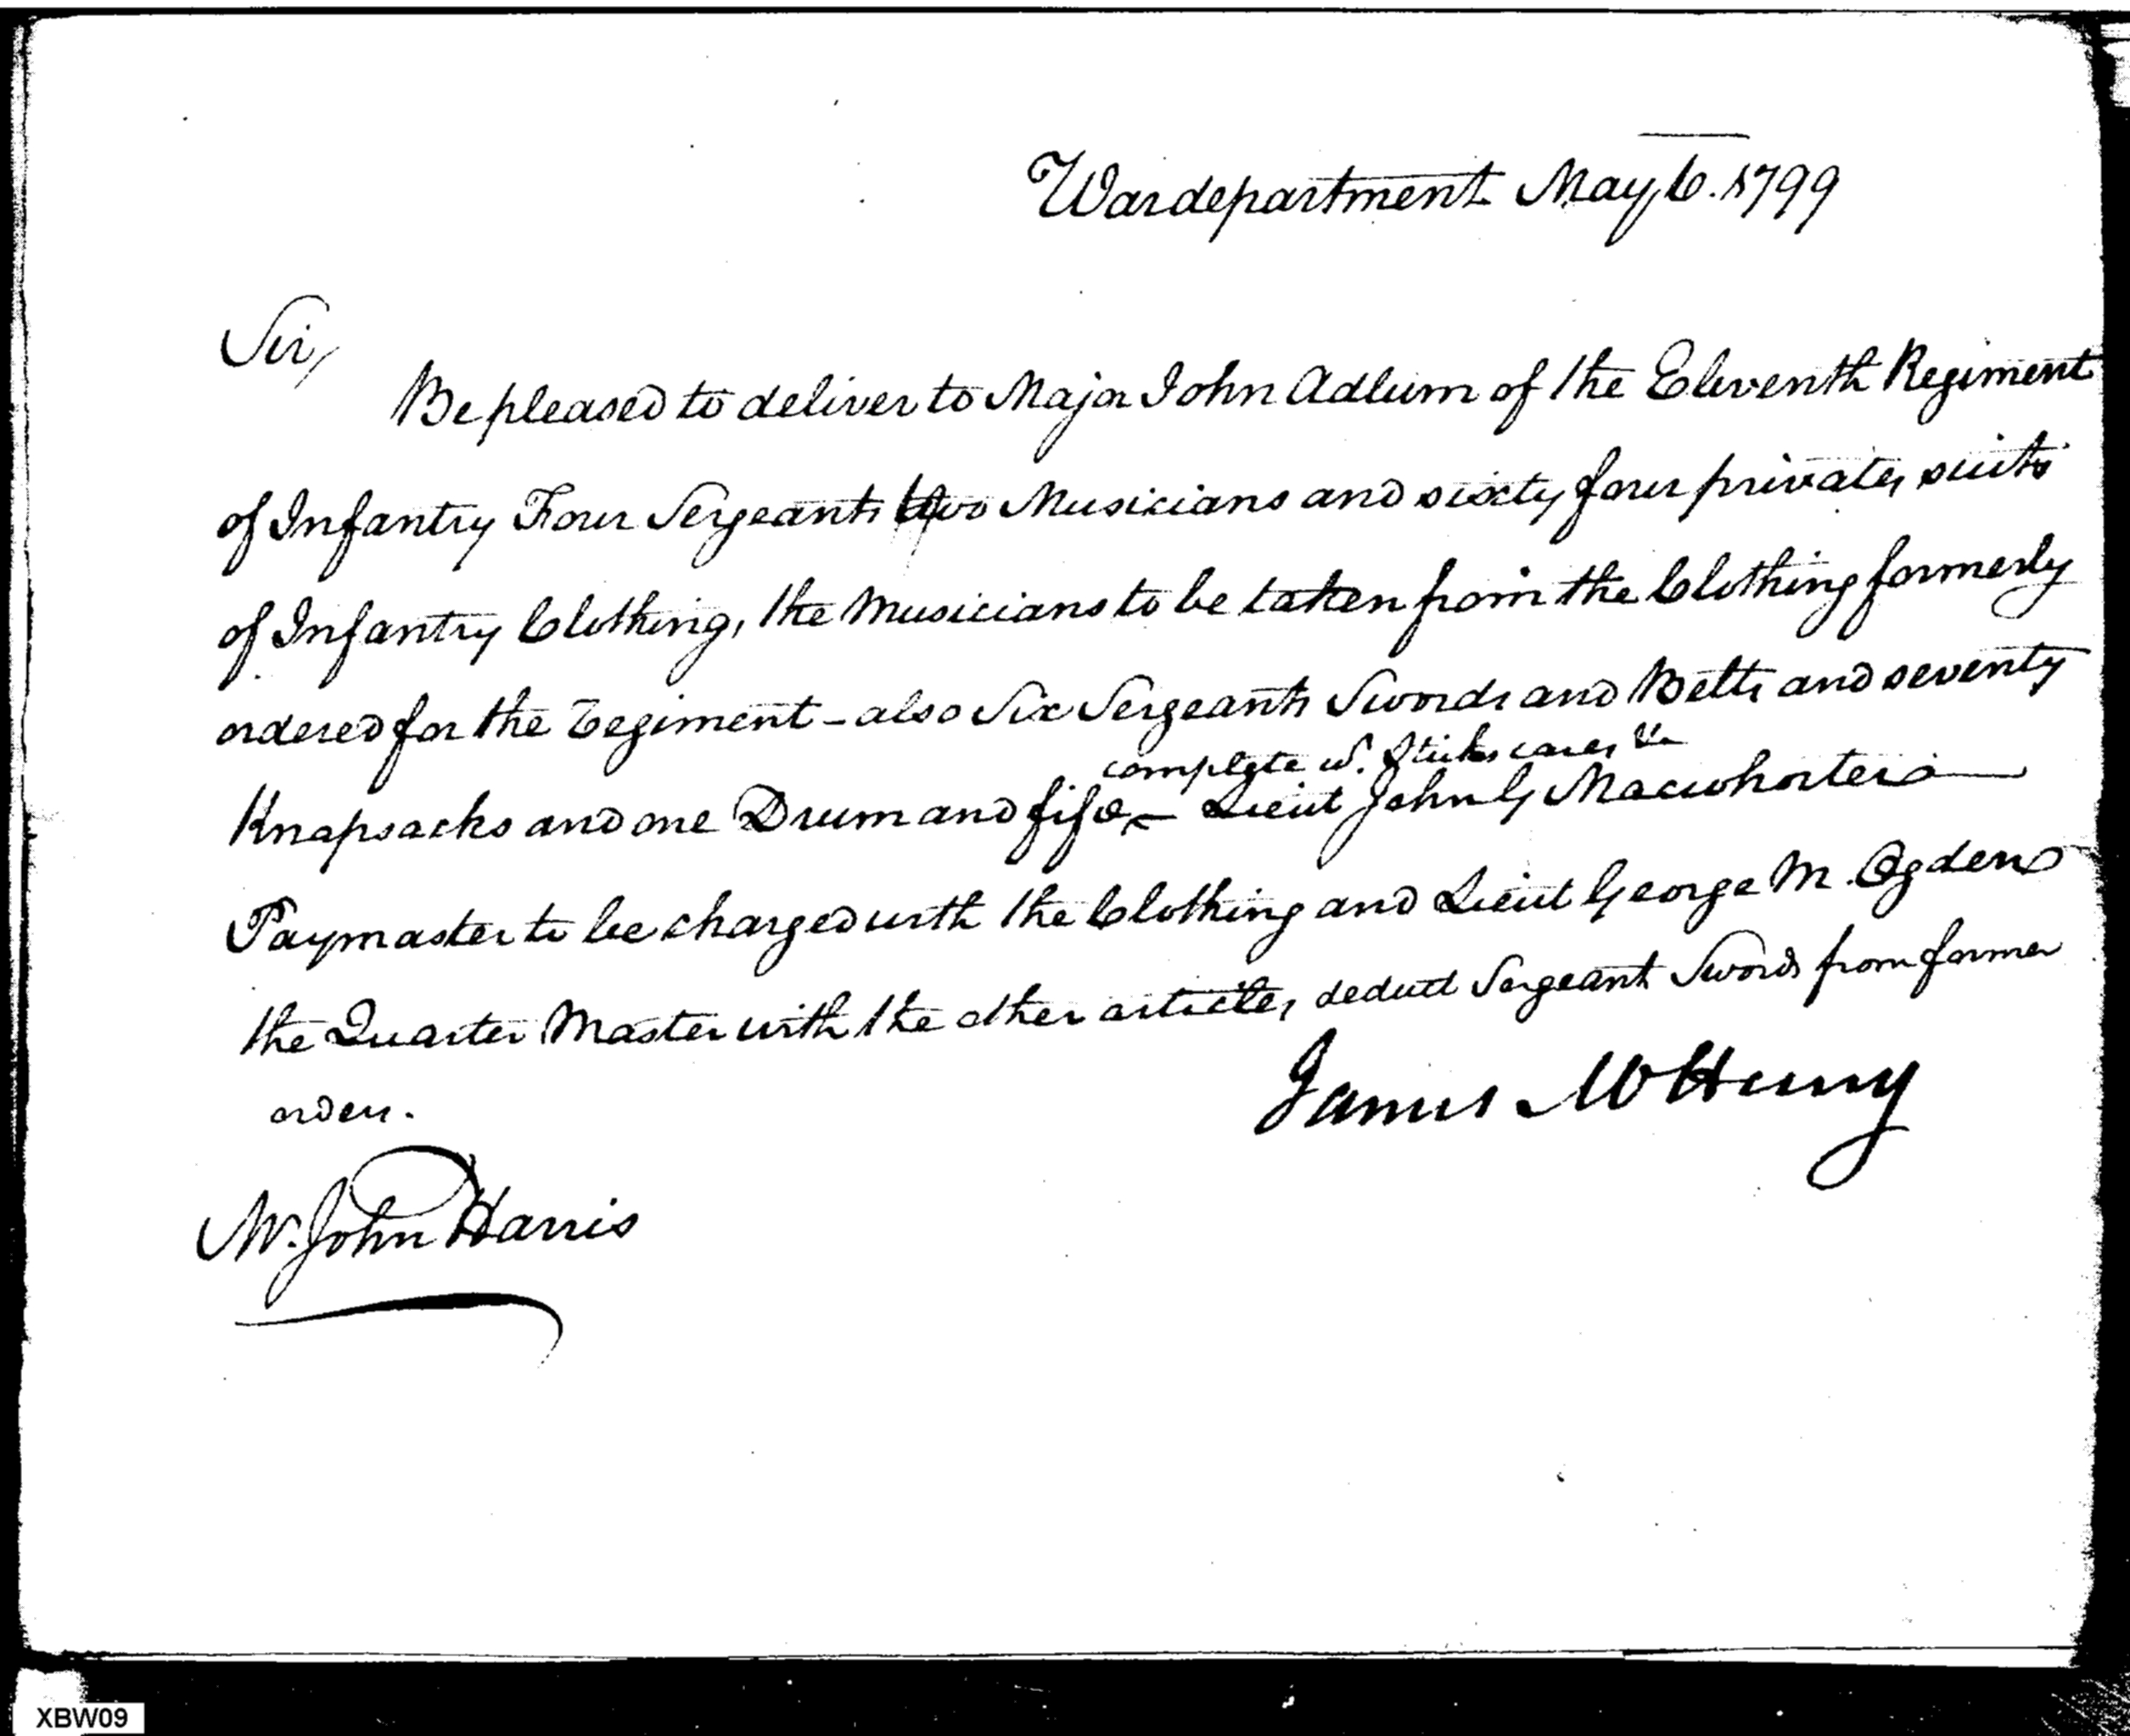 Wardepartment May 6. 1799
Sir,
Be pleased to deliver to Major John Adlum of the Eleventh Regiment
of Infantry Four Sergeants two Musicians and sixty four privates suits
of Infantry Clothing, the Musicians to be taken from the Clothing formerly
ordered for the Regiment - also Six Sergeants Swords and Belts and seventy
complete w. Sticks cases &c
Knapsacks and one Drum and fife - Lieut John G Macwhorter
Paymaster to be charged with the Clothing and Lieut George M. Ogden
the Quarter Master with the other articles, deduct Sergeant Swords from former
order.
James McHenry
Mr. John Harris
XBW09